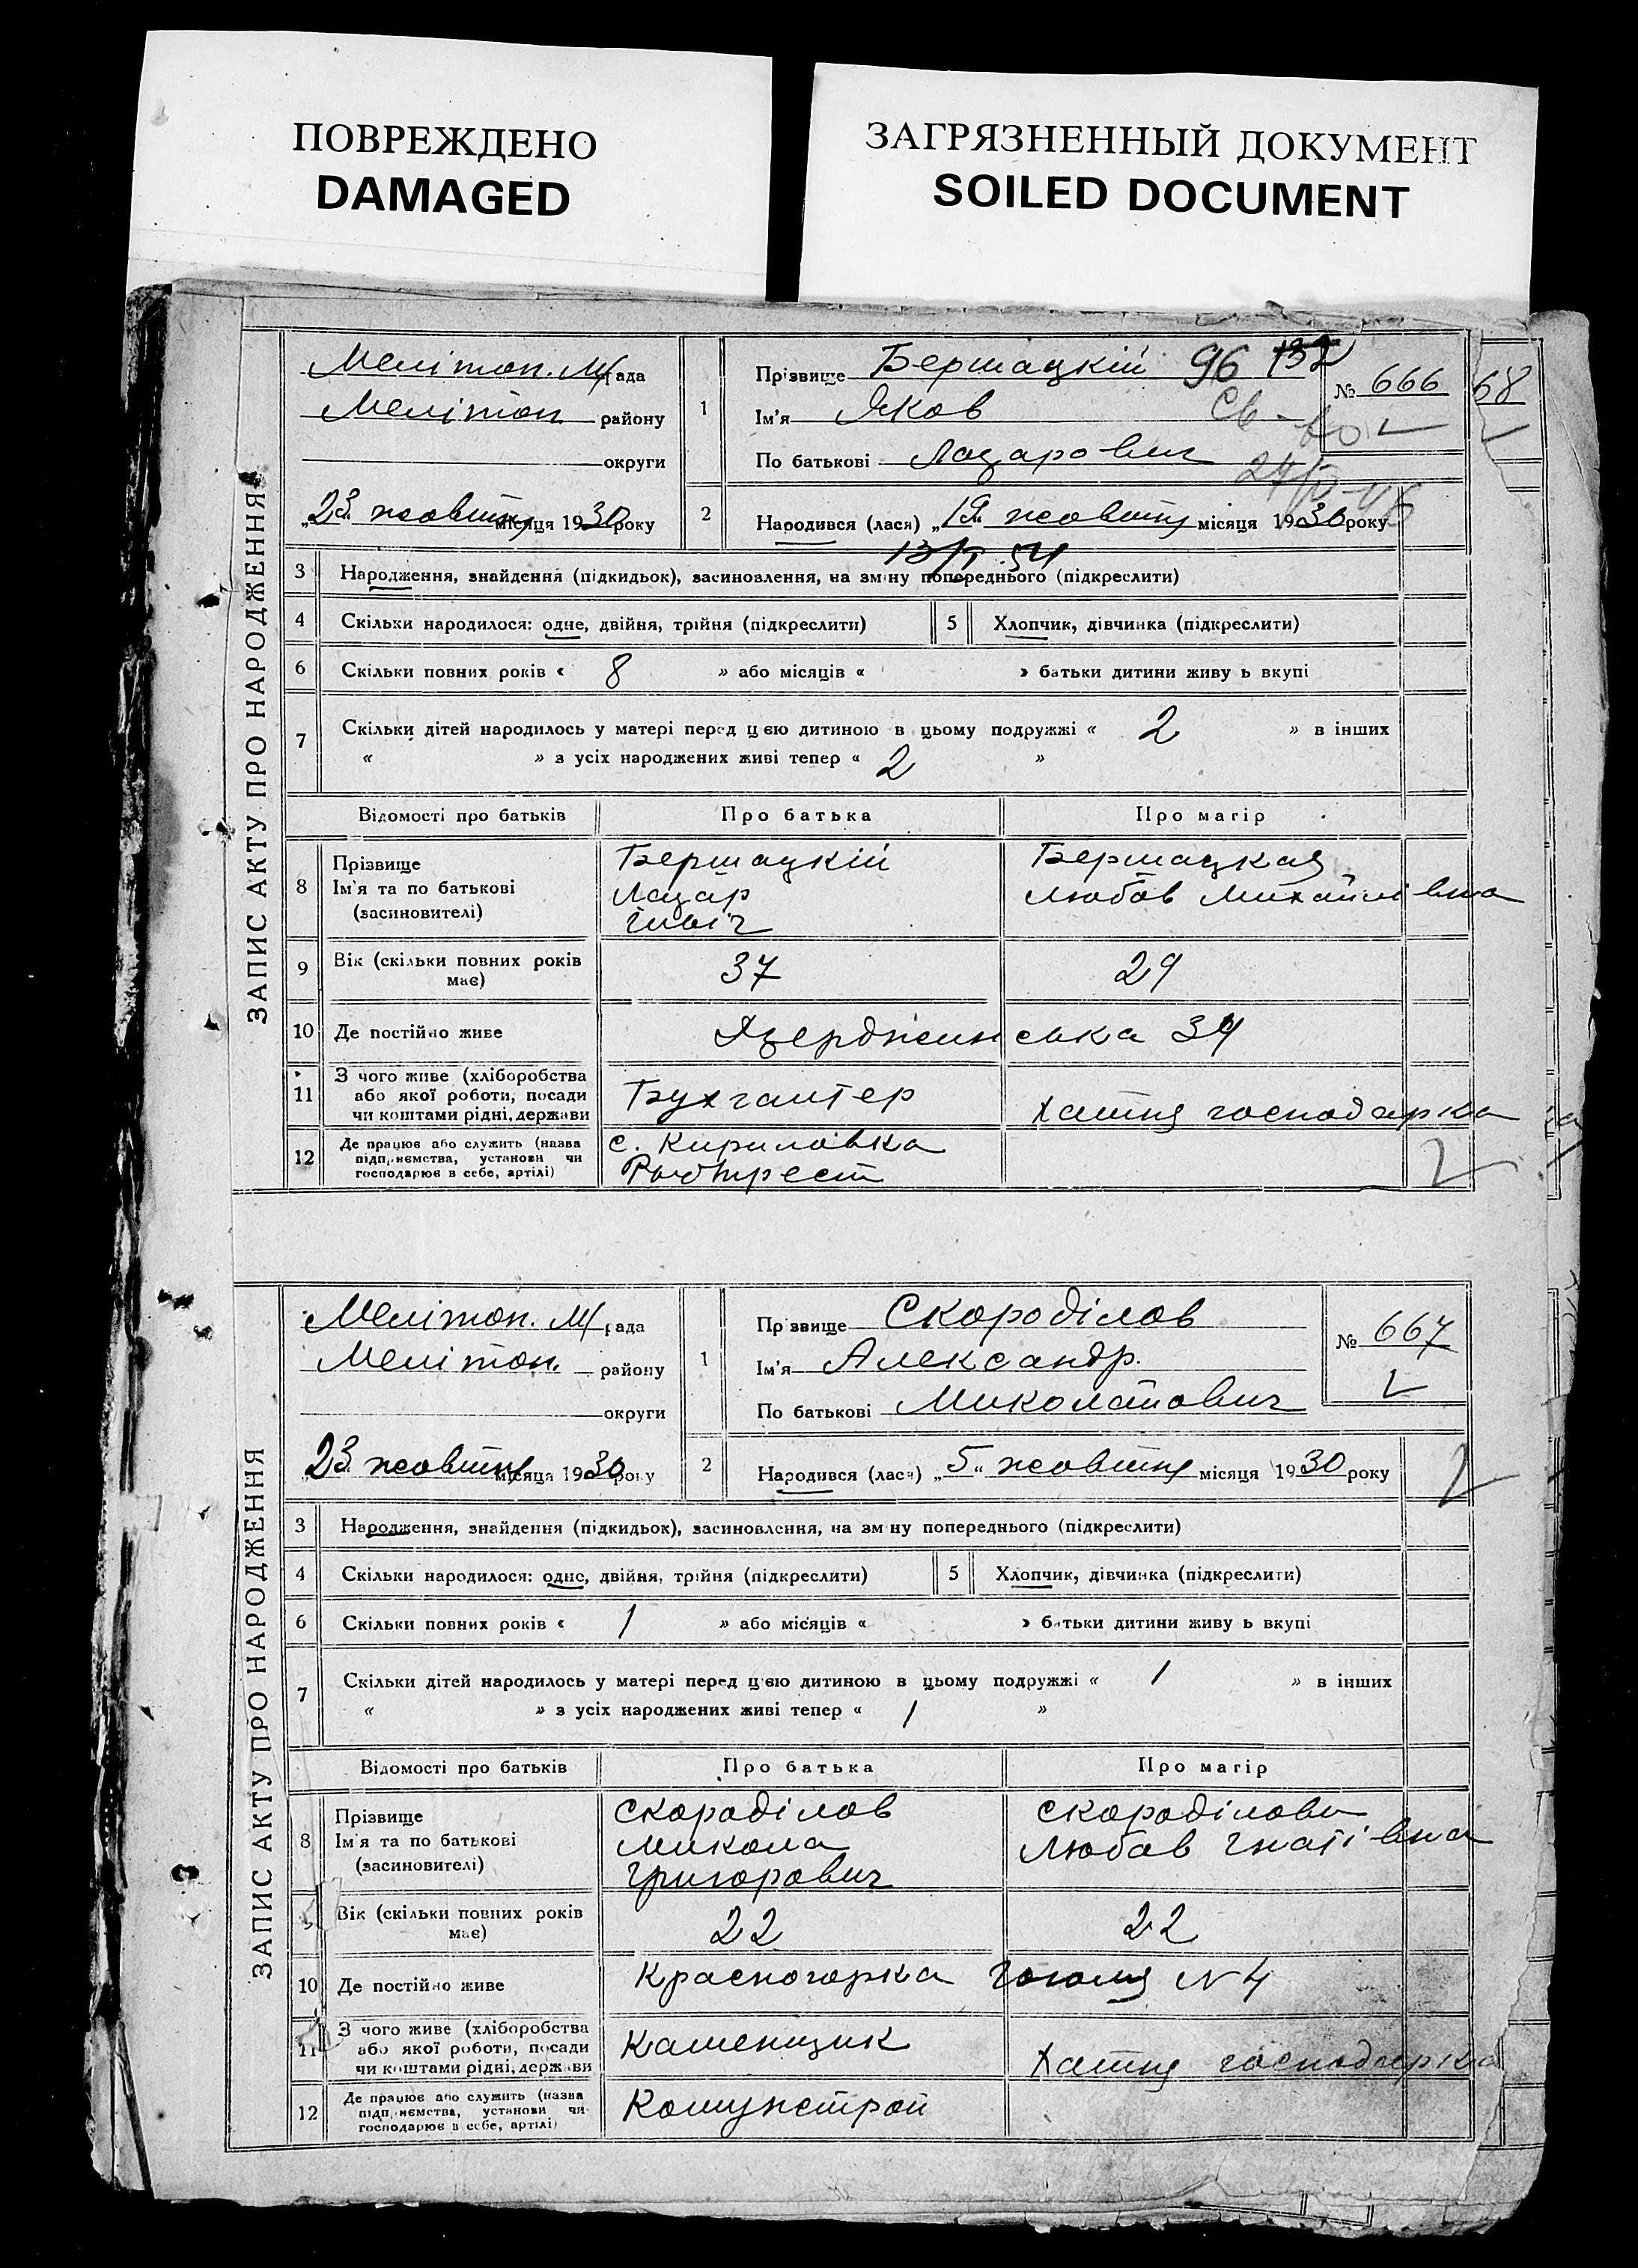 ПОВРЕЖДЕНО
DAMAGED
ЗАГРЯЗНЕННЫЙ ДОКУМЕНТ
SOILED DOCUMENT
ЗАПИС АКТУ ПРО НАРОДЖЕННЯ
Мелітоп. М/рада
Мелітоп району
округи
„23“ жовтня місяця 1930 року
1
Прізвище Бершацкій 96 132
Ім'я Яков
По батькові Лазарович
№ 666
68
2
Народився (лася) „19“ жовтня місяця 1930 року
3 Народження, знайдення (підкидьок), засиновлення, на зміну попереднього (підкреслити)
4 Скільки народилося: одне, двійня, трійня (підкреслити) 5 Хлопчик, дівчинка (підкреслити)
6 Скільки повних років « 8 » або місяців « » батьки дитини живу ь вкупі
7 Скільки дітей народилось у матері перед цією дитиною в цьому подружжі « 2 » в інших
« » з усіх народжених живі тепер « 2 »
Відомості про батьків Про батька Про матір
8 Прізвище Бершацкій Бершацкая
Ім'я та по батькові Лазар Любов Михайлівна
(засиновителі)
9 Вік (скільки повних років має) 37 29
10 Де постійно живе Дзержинська 34
11 З чого живе (хліборобства
або якої роботи, посади Бухгалтер Хатня господарка
чи коштами рідні, держави
12 Де працює або служить (назва с. Кириловка
підприємства, установи чи Рибтрест
господарює в себе, артілі)
ЗАПИС АКТУ ПРО НАРОДЖЕННЯ
Мелітоп. М/рада
Мелітоп. району
округи
„23“ жовтня місяця 1930 року
1
Прізвище Скороділов
Ім'я Александр.
По батькові Миколайович
№ 667
2
Народився (лася) „5“ жовтня місяця 1930 року
3 Народження, знайдення (підкидьок), засиновлення, на зміну попереднього (підкреслити)
4 Скільки народилося: одне, двійня, трійня (підкреслити) 5 Хлопчик, дівчинка (підкреслити)
6 Скільки повних років « 1 » або місяців « » батьки дитини живу ь вкупі
7 Скільки дітей народилось у матері перед цією дитиною в цьому подружжі « 1 » в інших
« » з усіх народжених живі тепер « 1 »
Відомості про батьків Про батька Про матір
8 Прізвище Скороділов Скороділова
Ім'я та по батькові Микола Любов Гнатівна
(засиновителі) Григорович
9 Вік (скільки повних років має) 22 22
10 Де постійно живе Красногорка Гоголя №4
11 З чого живе (хліборобства
або якої роботи, посади Каменщик Хатня господарка
чи коштами рідні, держави
12 Де працює або служить (назва
підприємства, установи чи Комунстрой
господарює в себе, артілі)